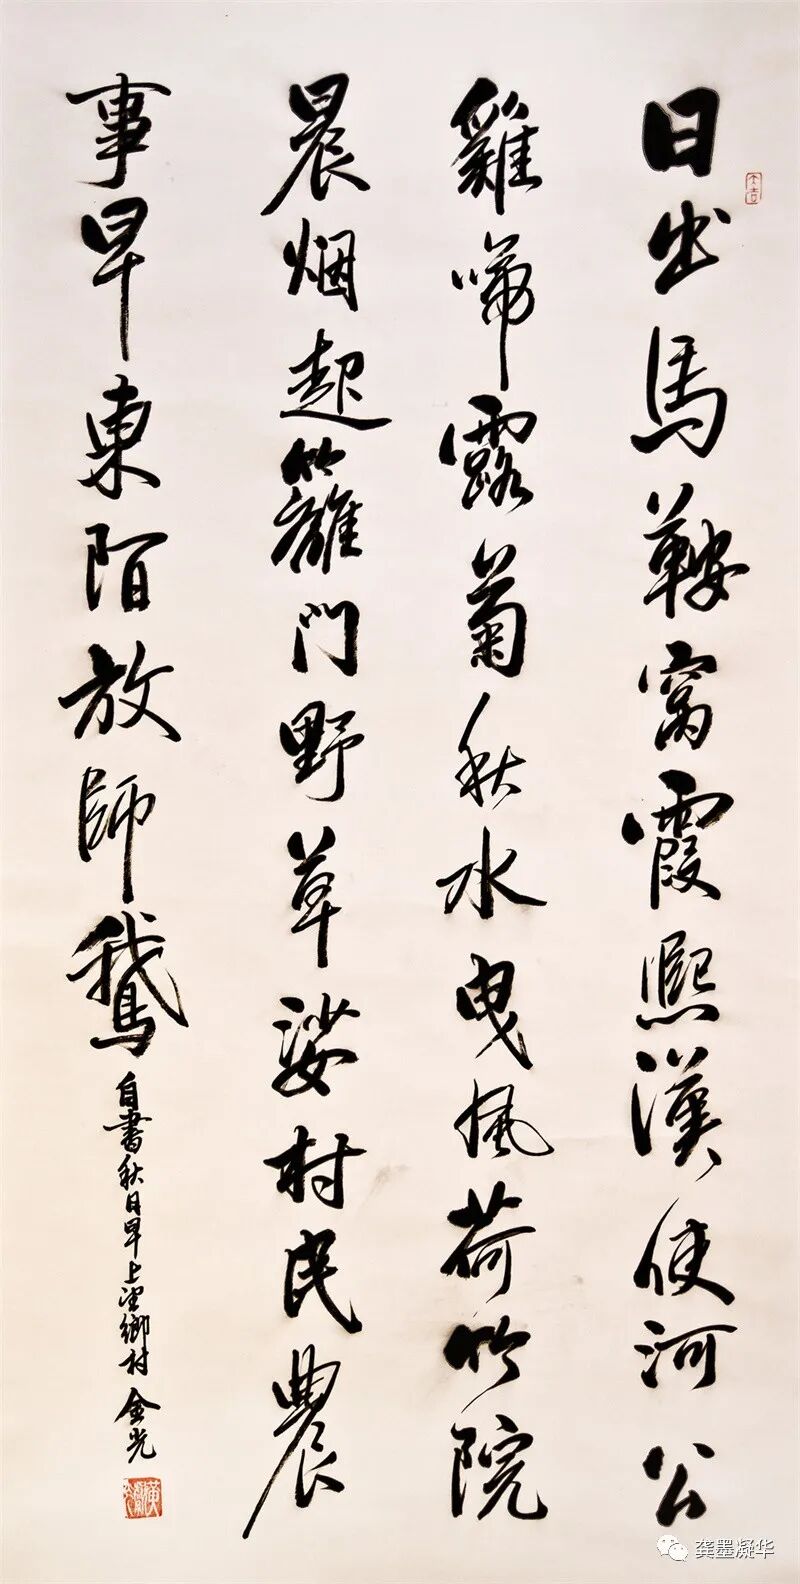 日出馬鞍窩霞熙漢使河公
雞啼露菊秋水曳風荷竹院
晨烟起籬門野草娑村民農
事早東陌放師鵝
自書秋日早上望鄉村 金光
龔墨凝华